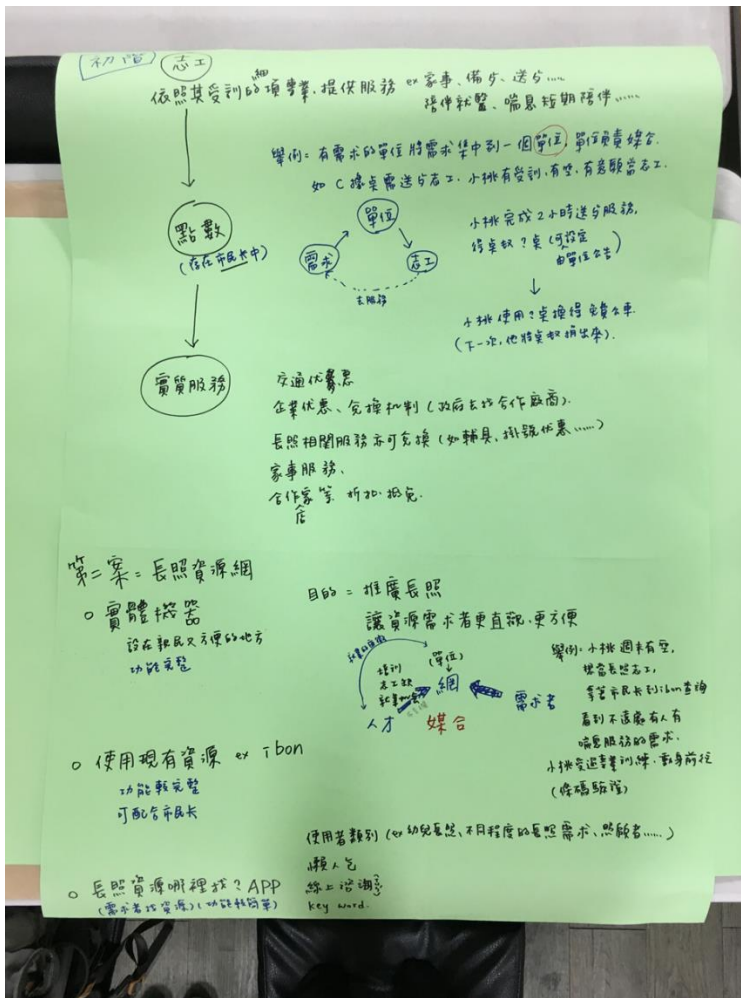 初階
志工
依照其受訓的細項專業,提供服務 ex 家事、備歺、送歺....
陪伴就醫、喘息短期陪伴......
舉例：有需求的單位將需求集中到一個單位,單位負責媒合.
如 C 據點需送歺志工,小桃有受訓,有空,有意願當志工.
單位
需求
志工
去服務
點數
(存在市民卡中)
小桃完成2小時送歺服務,
得點數?點(可設定
由單位公告)
小桃使用?點換得免費公車
(下一次,他將點數捐出來).
實質服務
交通优惠
企業优惠、兌換机制(政府去找合作廠商).
長照相關服務亦可兌換(如輔具、掛號优惠......)
家事服務、
合作店家等 折扣.抵免.
第二案=長照資源網
目的=推廣長照
讓資源需求者更直觀.更方便
○ 實體機器
設在親民又方便的地方
功能完整
培訓
志工缺
(單位)
網
人才
媒合
需求者
舉例：小桃週末有空,
想當長照志工,
拿著市民卡到ibon查詢
看到不遠處有人有
喘息服務的需求.
小桃受過專業訓練,動身前往
(條碼驗證)
○ 使用現有資源 ex ibon
功能較完整
可配合市民卡
使用者類別(ex 幼兒長照、不同程度的長照需求、照顧者......)
懶人包
線上諮詢
key word.
○ 長照資源哪裡找? APP
(需求者找資源)(功能較簡單)